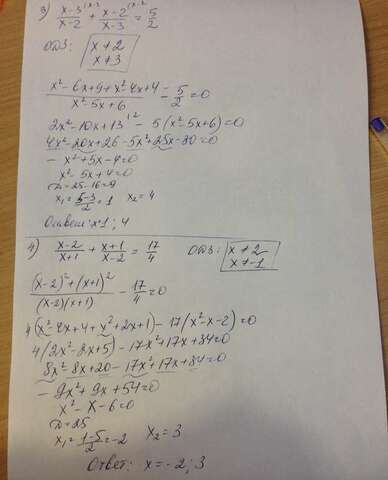 3) (x-3)^(x-3)/(x-2) + (x-2)^(x-2)/(x-3) = 5/2
ОДЗ: x ≠ 2
x ≠ 3
(x²-6x+9+x²-4x+4)/(x²-5x+6) - 5/2 = 0
2x²-10x+13 |·2 - 5(x²-5x+6)=0
4x²-20x+26-5x²+25x-30=0
-x²+5x-4=0
x²-5x+4=0
D=25-16=9
x₁=(5-3)/2=1 x₂=4
Ответ: x=1; 4
4) (x-2)/(x+1) + (x+1)/(x-2) = 17/4 ОДЗ: x ≠ 2
x ≠ -1
((x-2)²+(x+1)²)/((x-2)(x+1)) - 17/4 = 0
4(x²-4x+4+x²+2x+1)-17(x²-x-2)=0
4(2x²-2x+5)-17x²+17x+34=0
8x²-8x+20-17x²+17x+34=0
-9x²+9x+54=0
x²-x-6=0
D=25
x₁=(1-5)/2=-2 x₂=3
Ответ: x=-2; 3